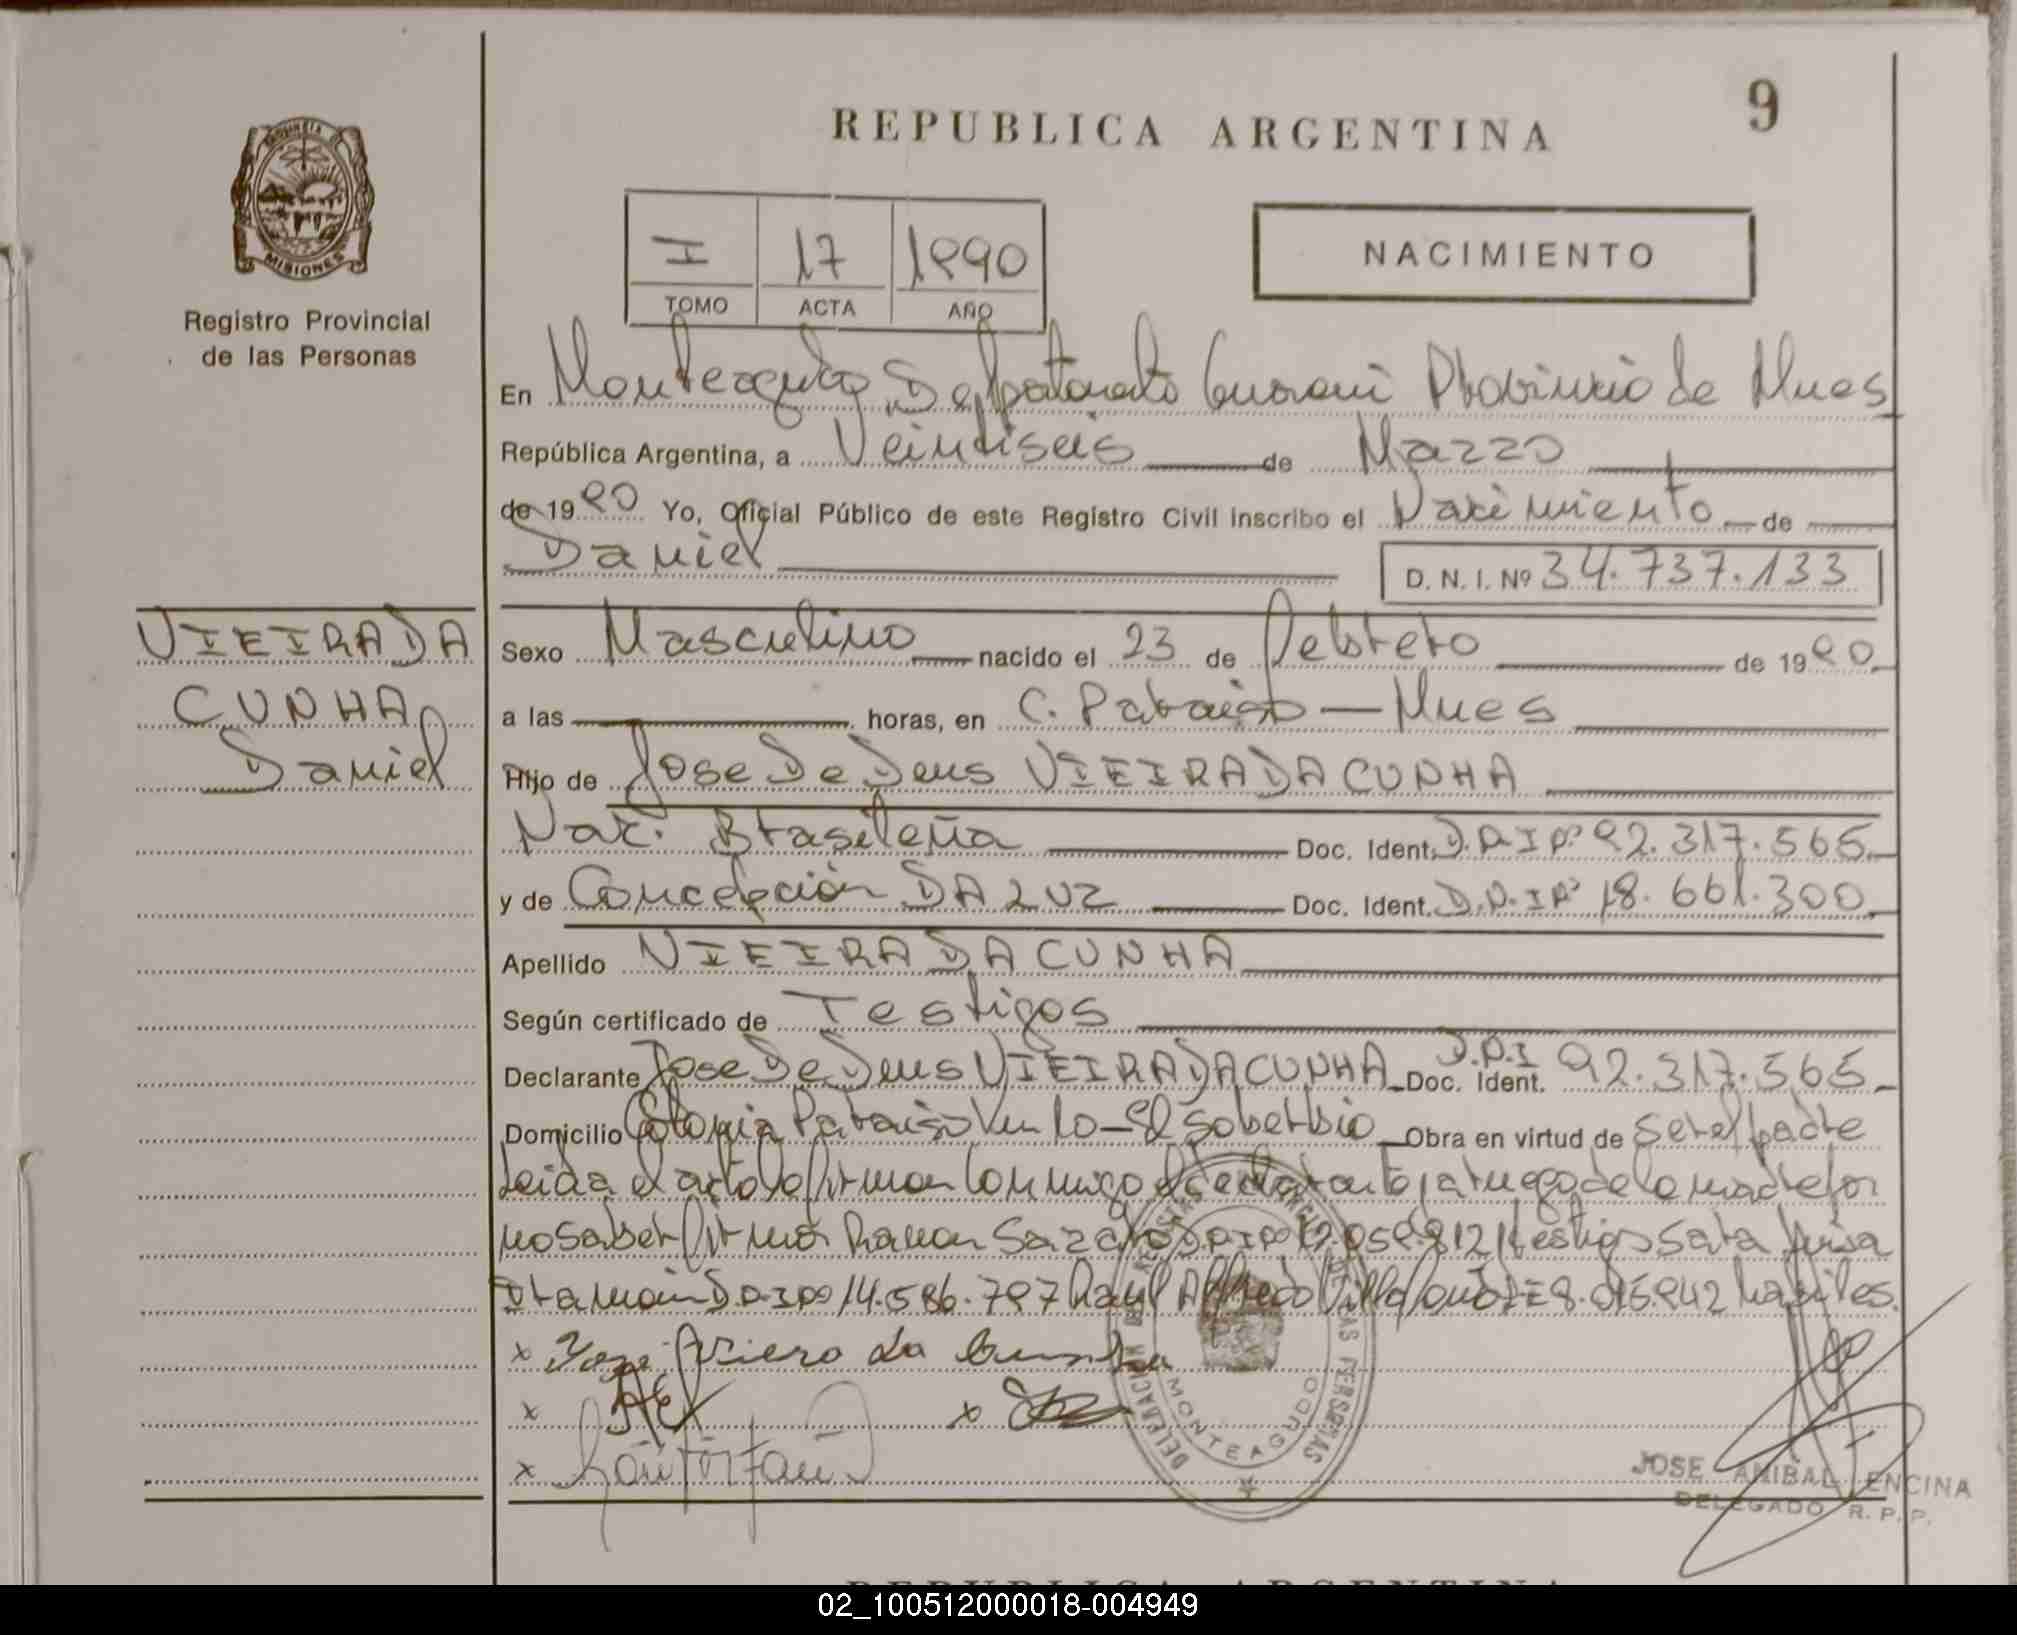 REPUBLICA ARGENTINA
9
PROVINCIA
MISIONES
Registro Provincial
de las Personas
I 17 1990
TOMO ACTA AÑO
NACIMIENTO
En Monteagudo Departamento Guarani Provincia de Mnes
República Argentina, a Veintiseis de Marzo
de 1990 Yo, Oficial Público de este Registro Civil inscribo el Nacimiento de
Daniel D. N. I. Nº 34.737.133
VIEIRA DA
CUNHA
Daniel
Sexo Masculino nacido el 23 de Febrero de 1990
a las horas, en C. Paraiso — Mnes
Hijo de Jose De Deus VIEIRA DA CUNHA
Nac. Brasileña Doc. Ident. D.N.I Nº 92.317.565
y de Concepción DA LUZ Doc. Ident. D.N.I Nº 18.661.300
Apellido VIEIRA DA CUNHA
Según certificado de Testigos
Declarante Jose De Deus VIEIRA DA CUNHA Doc. Ident. D.N.I 92.317.565
Domicilio Colonia Paraiso - El Soberbio Obra en virtud de ser el padre
Leida el acta la firman conmigo el declarante, a ruego de la madre por
no saber firmar Ramon D.N.I Nº testigos Sara
D.N.I Nº 14.586.797 Raul Alfredo habiles.
x da Cunha
x x
x
DELEGACION
DE LAS PERSONAS
MONTEAGUDO
JOSE ANIBAL ENCINA
DELEGADO R. P. P.
REPUBLICA ARGENTINA
02_100512000018-004949